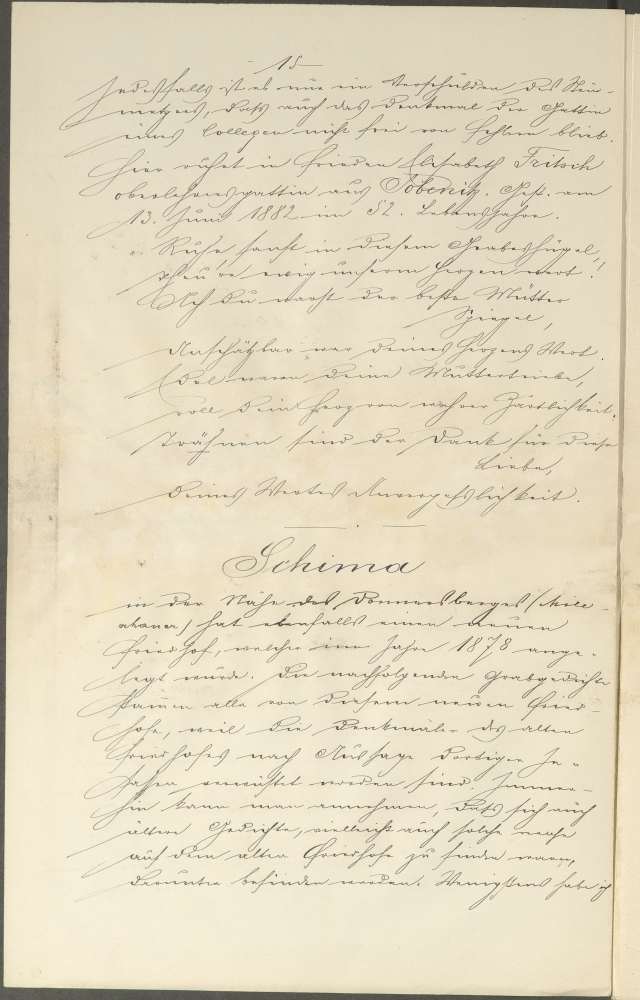 15
Jedesfalls ist es nur ein Verschulden des Stein-
metzes, daß auch das Denkmal der Gattin
eines Collegen nicht frei von Fehlern blieb.
Hier ruhet in Frieden Elisabeth Fritsch
Oberlehrersgattin aus Soberitz. Gest. am
13. Juni 1882 im 52. Lebensjahre.
Ruhe sanft in diesem Grabeshügel,
ewig unserm Herzen wert!
Ach Du warst der beste Mütter
Spiegel,
Unschätzbar war Deines Herzens Wert.
Edel waren Deine Muttertriebe,
voll Dein Herz von wahrer Zärtlichkeit.
Trähnen sind der Dank für diese
Liebe,
Deines Wertes Unvergeßlichkeit.
Schima
in der Nähe des Donnersberges (Mile-
schauer) hat ebenfalls einen neuen
Friedhof, welcher im Jahre 1878 ange-
legt wurde. Die nachfolgenden Grabgedichte
stammen alle von diesem neuen Fried-
hofe, weil die Denkmäler des alten
Friedhofes nach Aussage dortiger In-
sassen verwüstet worden sind. Immer-
hin kann man annehmen, daß sich auch
ältere Gedichte, vielleicht auch solche welche
auf dem alten Friedhofe zu finden waren,
darunter befinden werden. Wenigstens habe ich